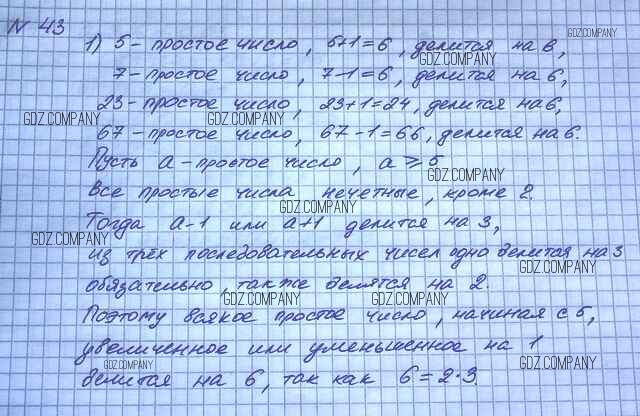 N 43
1) 5 - простое число, 5+1=6, делится на 6,
7 - простое число, 7-1=6, делится на 6,
23 - простое число, 23+1=24, делится на 6,
67 - простое число, 67-1=66, делится на 6.
Пусть a - простое число, a ⩾ 5
Все простые числа нечетные, кроме 2.
Тогда a-1 или a+1 делится на 3,
из трёх последовательных чисел одно делится на 3
обязательно, также делятся на 2.
Поэтому всякое простое число, начиная с 5,
увеличенное или уменьшенное на 1
делится на 6, так как 6=2·3.
GDZ.COMPANY
GDZ.COMPANY
GDZ.COMPANY
GDZ.COMPANY
GDZ.COMPANY
GDZ.COMPANY
GDZ.COMPANY
GDZ.COMPANY
GDZ.COMPANY
GDZ.COMPANY
GDZ.COMPANY
GDZ.COMPANY